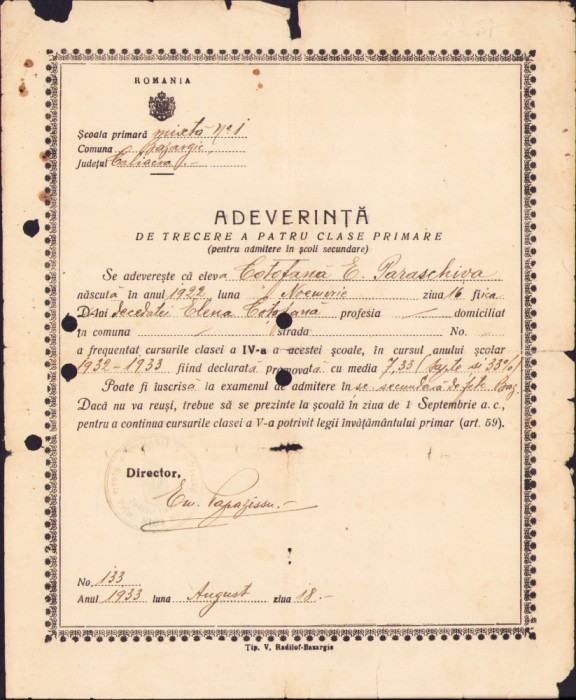 ROMANIA
Școala primară mixtă No 1
Comuna Bazargic
Județul Caliacra
ADEVERINȚĂ
DE TRECERE A PATRU CLASE PRIMARE
(pentru admitere în școli secundare)
Se adeverește că eleva Coțofană E. Paraschiva
născută în anul 1922 luna Noemvrie ziua 16 fiica
D-lui decedatei Elena Coțofană profesia — domiciliat
în comuna strada No.
a frequentat cursurile clasei a IV-a a acestei școale, în cursul anului școlar
1932-1933 fiind declarată promovată cu media 7,33 (șapte și 33%)
Poate fi înscrisă la examenul de admitere în sc. secundară de fete Baz.
Dacă nu va reuși, trebue să se prezinte la școală în ziua de 1 Septembrie a. c.,
pentru a continua cursurile clasei a V-a potrivit legii învățământului primar (art. 59).
Director,
No. 133
Anul 1933 luna August ziua 18.-
Tip. V. Radilof-Basargic